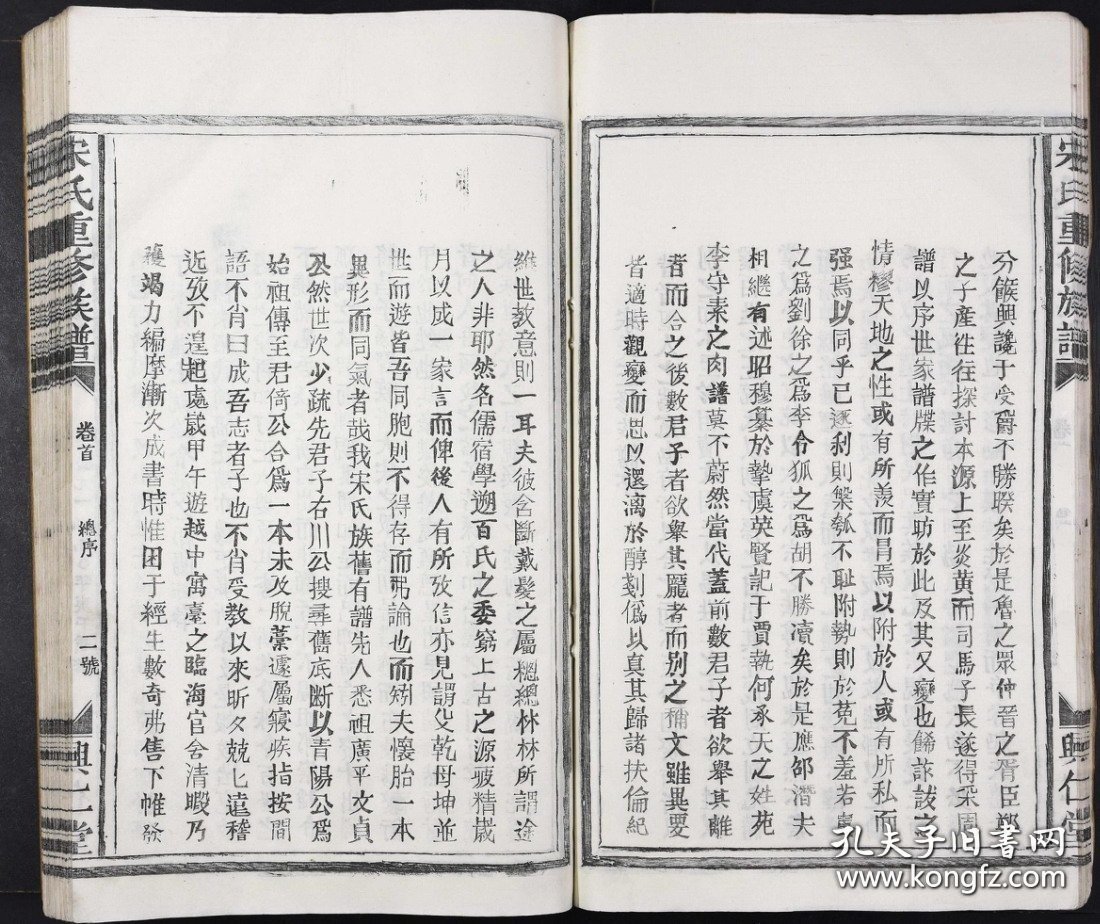 宋氏重修族譜
興仁堂
分餱興讒于受爵不勝暌矣於是魯之眾仲晉之胥臣鄭
之子產徃徃探討本源上至炎黃而司馬子長遂得采周
譜以序世家譜牒之作實昉於此及其又變也餙詼詖之
情樛天地之性或有所羨而冒焉以附於人或有所私而
强焉以同乎已逐利則槃瓠不耻附執則於菟不羞若婁
之爲劉徐之爲李令狐之爲胡不勝瀆矣於是應邵潛夫
相繼有述昭穆纂於摯虞英賢記于賈執何承天之姓苑
李守素之肉譜莫不蔚然當代蓋前數君子者欲舉其離
者而合之後數君子者欲舉其龐者而别之稱文雖異要
者適時觀變而思以還漓於醇剗僞以真其歸諸扶倫紀
維世教意則一耳夫彼含齗戴髮之屬總總林林所謂途
之人非耶然名儒宿學遡百氏之委窮上古之源疲精歲
月以成一家言而俾後人有所攷信亦見謂父乾母坤並
世而遊皆吾同胞則不得存而弗論也而矧夫懷胎一本
異形而同氣者哉我宋氏族舊有譜先人悉祖廣平文貞
公然世次少疏先君子右川公搜尋舊底断以青陽公爲
始祖傳至君倚公合爲一本未及脫藁遽屬寢疾指按間
語不肖曰成吾志者子也不肖受教以來昕夕兢匕遠稽
近攷不遑起處歲甲午遊越中寓臺之臨海官舍清暇乃
獲竭力編摩漸次成書時惟困于經生數奇弗售下帷發
宋氏重修族譜
卷首
總序
二號
興仁堂
孔夫子旧书网
www.kongfz.com